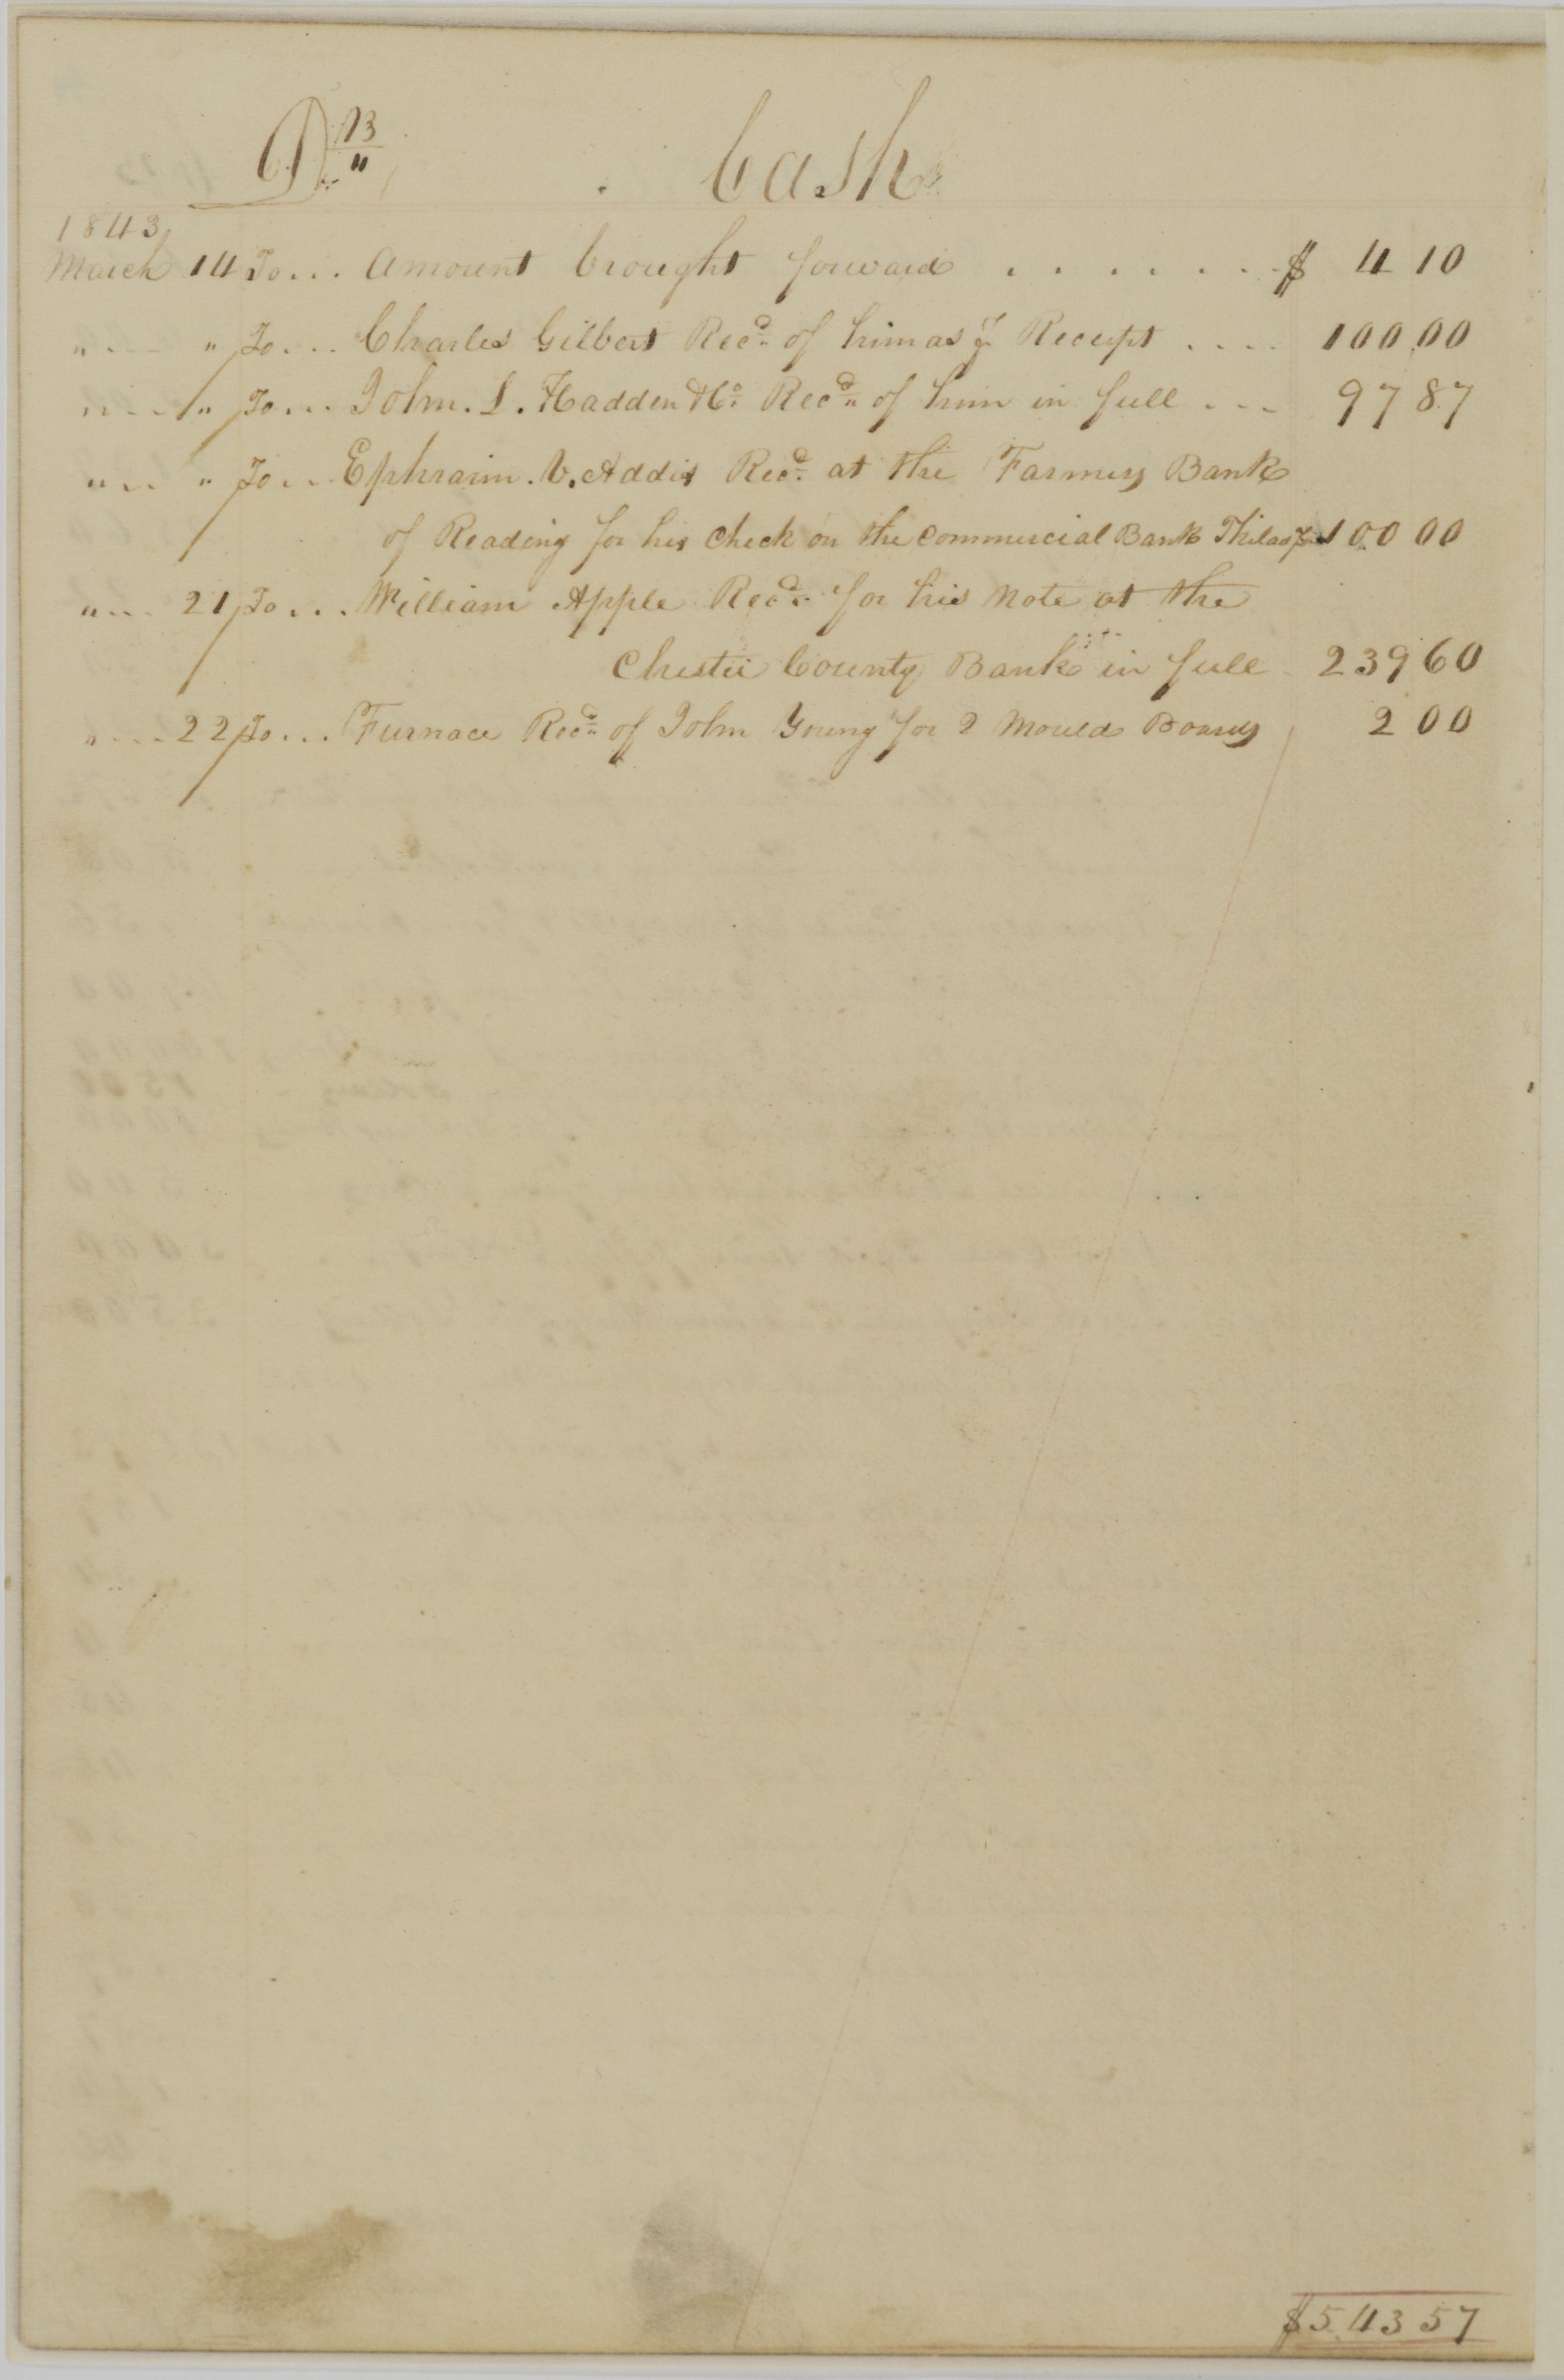 Dr 13 " Cash
1843
March 14 To... Amount brought forward . . . . . . . $ 4 10
" --- " To... Charles Gilbert Recd. of him as pr Receipt .... 100 00
" --- " To... John. L. Hadden & Co. Recd. of him in full --- 97 87
" -- " To... Ephraim. V. Addis Recd. at the Farmers Bank
of Reading for his Check on the Commercial Bank Philada 100 00
" --- 21 To... William Apple Recd. for his Note at the
Chester County Bank in full - 239 60
" --- 22 To... Furnace Recd. of John Young for 2 Mould Boards 2 00
$543 57